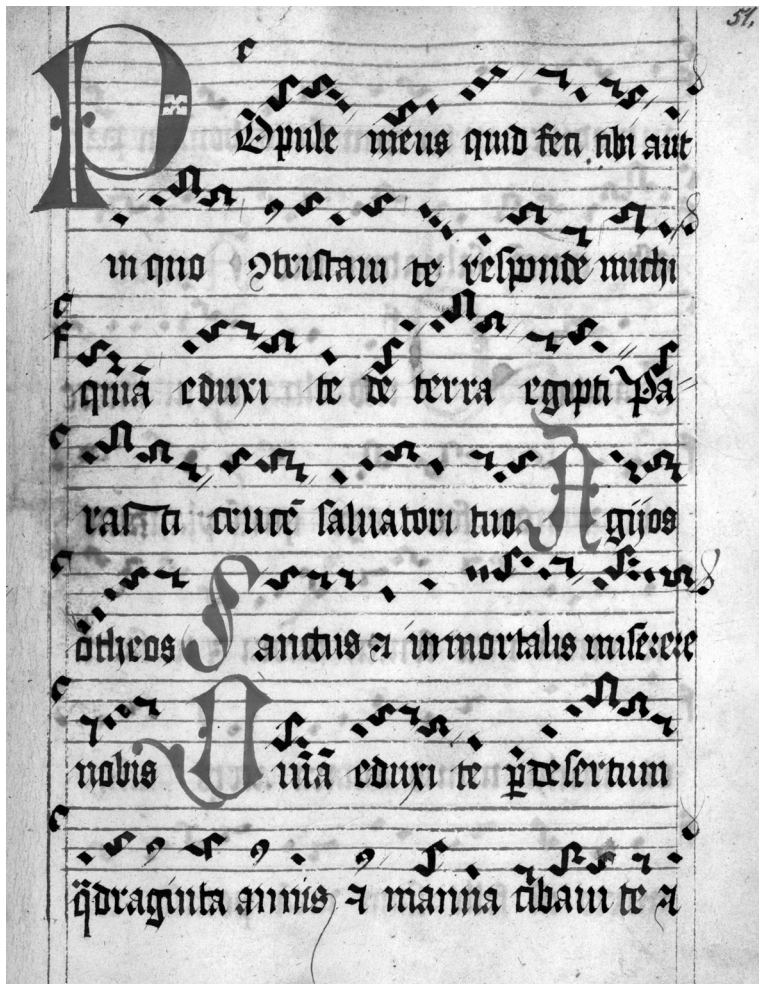 51.
POpule meus quid feci tibi aut
in quo ꝯtristaui te respondē michi
quiā eduxi te de terra egipti Pa
rasti crucē saluatori tuo Agijos
otheos Sanctus ⁊ inmortalis miserere
nobis Quiā eduxi te ꝑ desertum
qͣdraginta annis ⁊ manna cibaui te ⁊